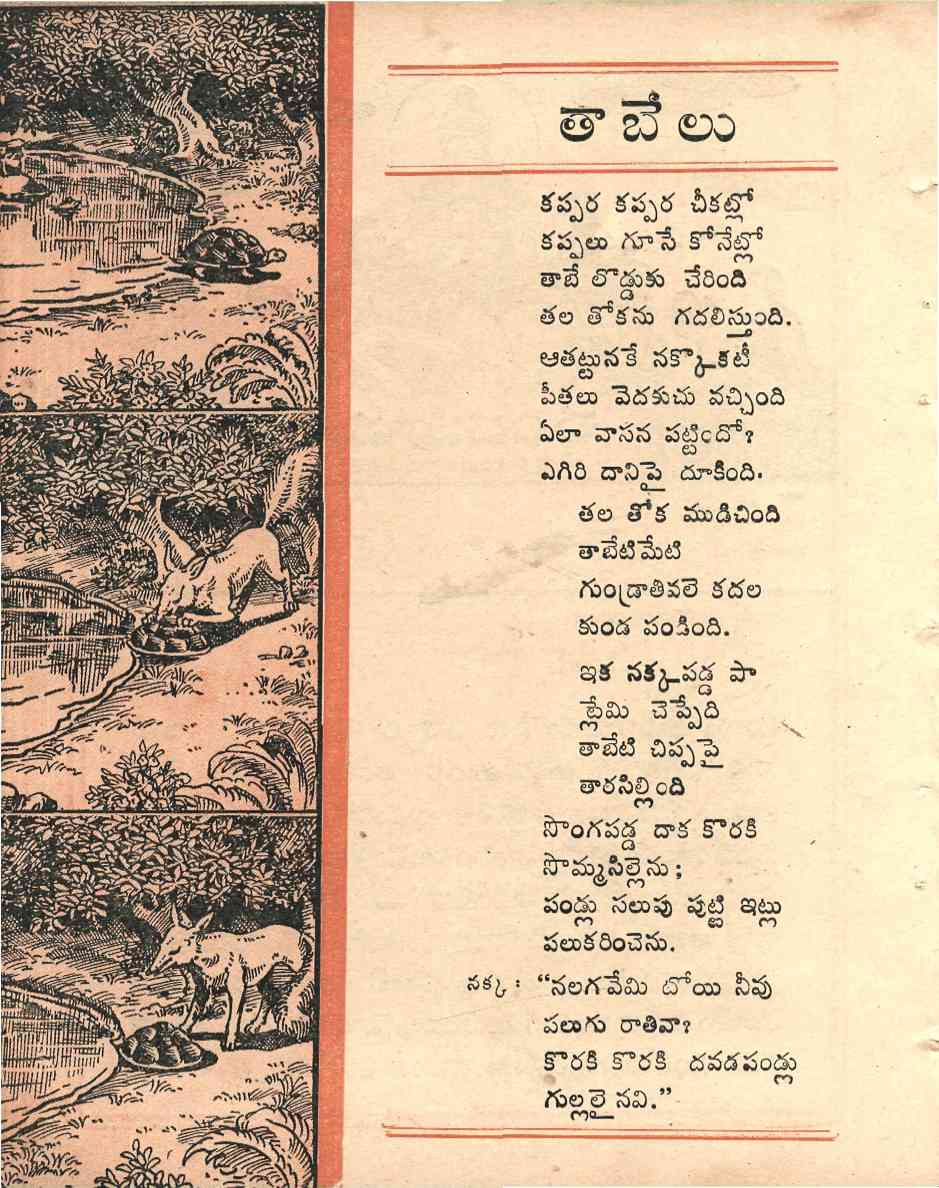 తాబేలు
కప్పర కప్పర చీకట్లో
కప్పలు గూసే కోనేట్లో
తాబే లొడ్డుకు చేరింది
తల తోకను గదలిస్తుంది.
ఆతట్టునకే నక్కొకటీ
పీతలు వెదకుచు వచ్చింది
ఏలా వాసన పట్టిందో?
ఎగిరి దానిపై దూకింది.
తల తోక ముడిచింది
తాబేటిమేటి
గుండ్రాతివలె కదల
కుండ పండింది.
ఇక నక్కపడ్డ పా
ట్లేమి చెప్పేది
తాబేటి చిప్పపై
తారసిల్లింది
సొంగపడ్డ దాక కొరకి
సొమ్మసిల్లెను;
పండ్లు సలుపు పుట్టి ఇట్లు
పలుకరించెను.
నక్క: "నలగవేమి బోయి నీవు
పలుగు రాతివా?
కొరకి కొరకి దవడపండ్లు
గుల్లలై నవి."